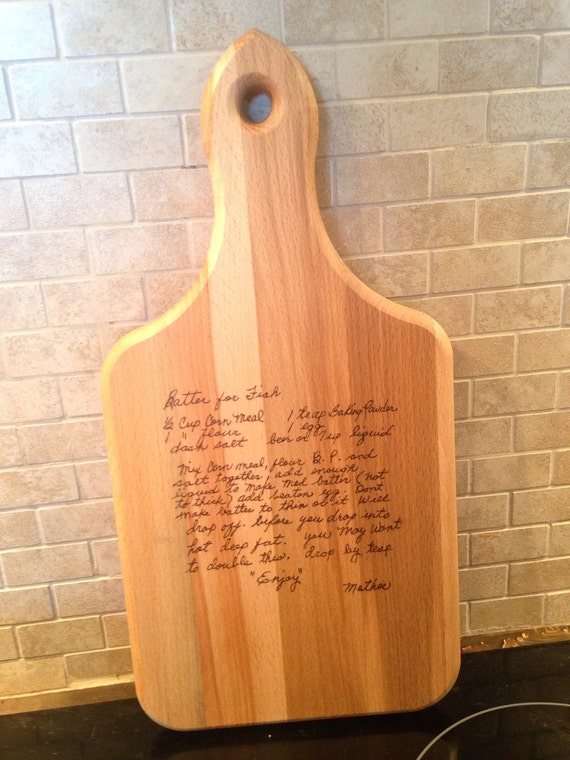 Batter for Fish
½ Cup Corn Meal 1 teasp Baking Powder
1 " flour 1 egg
dash salt beer or 7up liquid
Mix Corn meal, flour B. P. and
salt together, add enough
liquid to make med batter (not
to thick) add beaten egg. Don't
make batter to thin or it will
drop off. before you drop into
hot deep fat. you may want
to double this, drop by teasp
"Enjoy" Mother